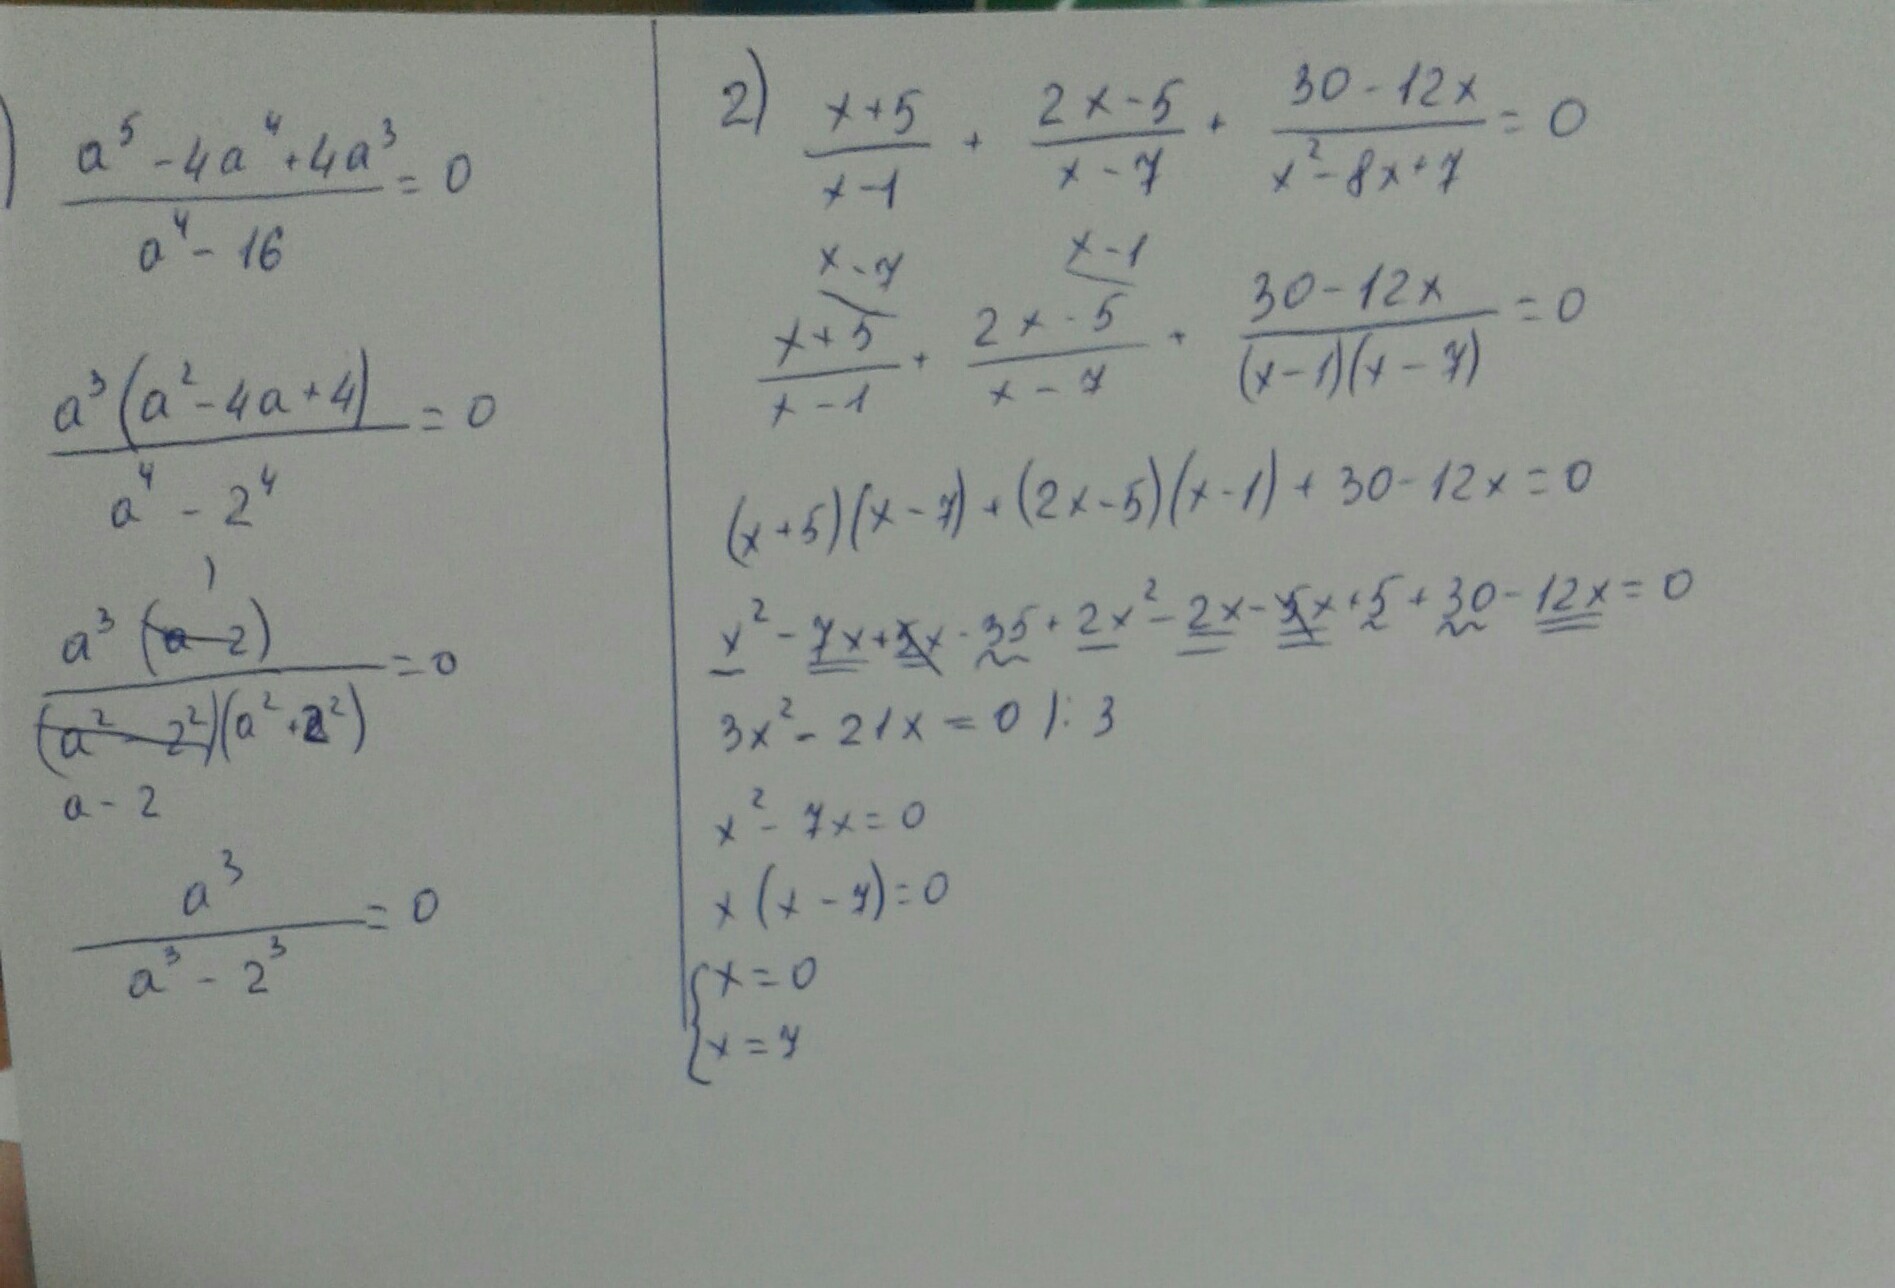 )
a⁵ - 4a⁴ + 4a³ / a⁴ - 16 = 0
a³(a² - 4a + 4) / a⁴ - 2⁴ = 0
1
a³(a - 2) / (a² - 2²)(a² + 2²) = 0
a - 2
a³ / a³ - 2³ = 0
2) x+5 / x-1 + 2x-5 / x-7 + 30-12x / x²-8x+7 = 0
x-7 x-1
x+5 / x-1 + 2x-5 / x-7 + 30-12x / (x-1)(x-7) = 0
(x+5)(x-7) + (2x-5)(x-1) + 30-12x = 0
x² - 7x + 5x - 35 + 2x² - 2x - 5x + 5 + 30 - 12x = 0
3x² - 21x = 0 /: 3
x² - 7x = 0
x(x-7) = 0
{ x = 0
x = 7